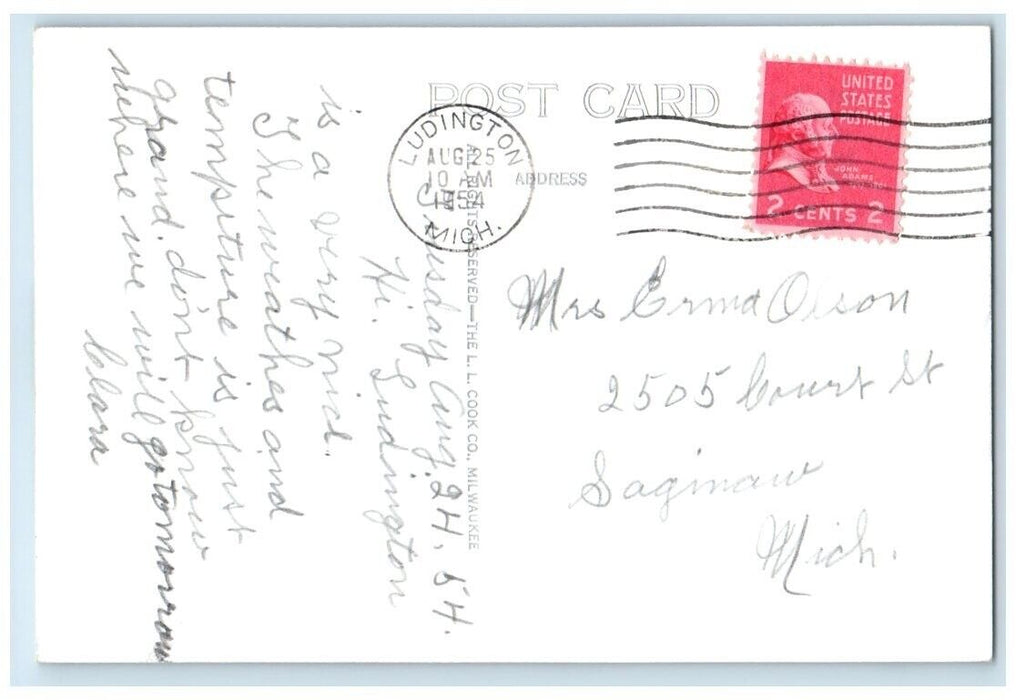 POST CARD
ADDRESS
LUDINGTON
AUG 25
10 AM
1954
MICH.
UNITED
STATES
POSTAGE
JOHN
ADAMS
2 CENTS 2
ALL RIGHTS RESERVED—THE L. L. COOK CO., MILWAUKEE
Tuesday Aug. 24, 54.
Hi. Ludington
is a very nice.
The weather and
tempature is just
grand. don't know
where we will go tomorrow
Clara
Mrs Erma Olson
2505 Court St
Saginaw
Mich.